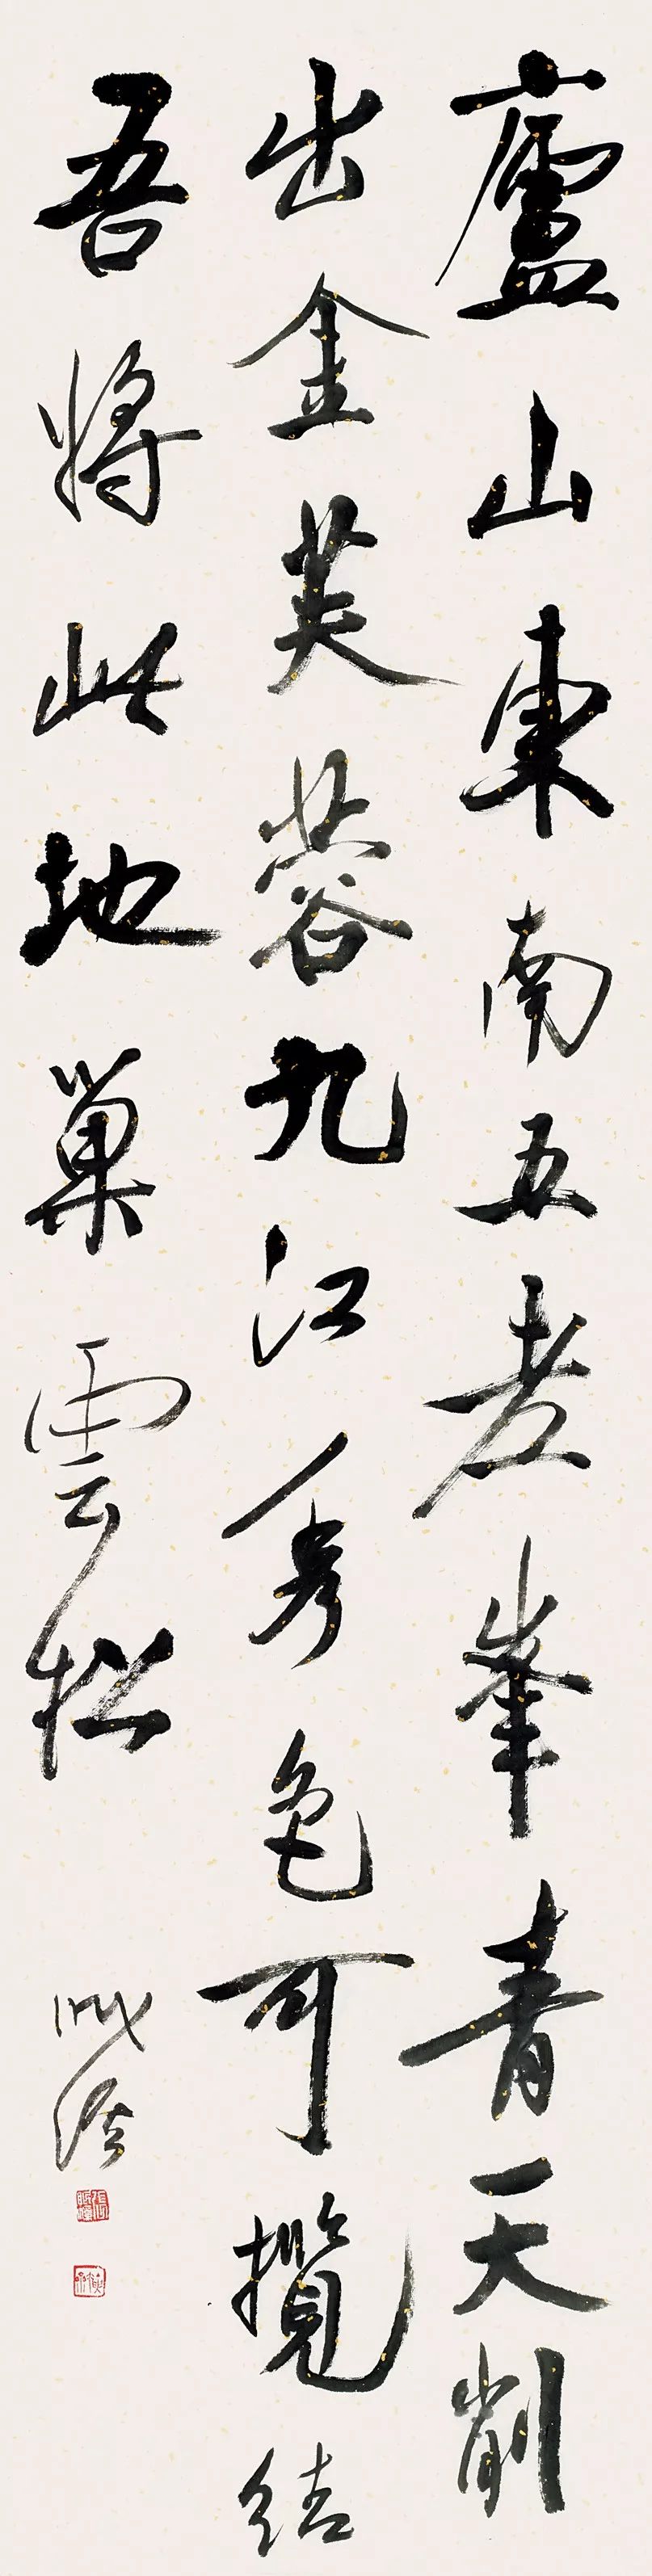 廬山東南五老峯青天削
出金芙蓉九江秀色可攬結
吾將此地巢雲松